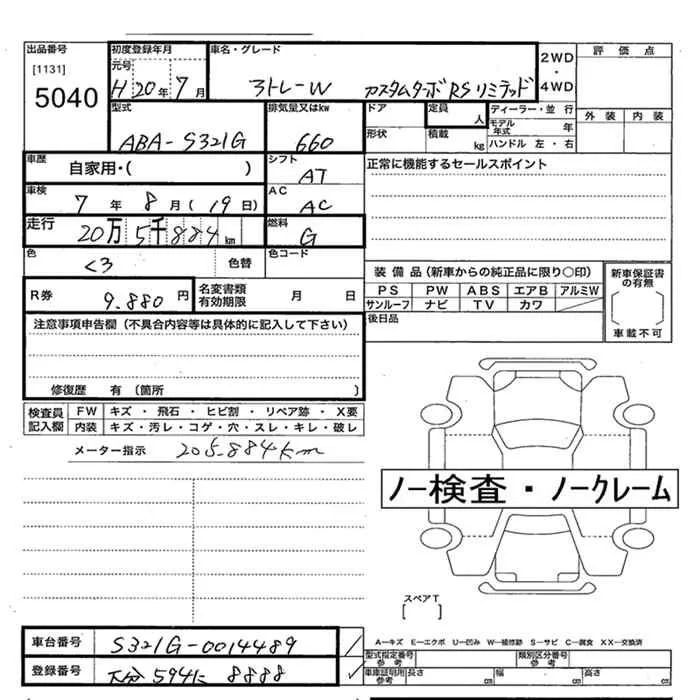 出品番号
[1131]
5040
初度登録年月
元号
H 20年 7月
車名・グレード
アトレーW カスタムターボRSリミテッド
2WD
・
4WD
評価点
外装 内装
型式
ABA-S321G
排気量又はkw
660
ドア
形状
定員
人
積載
kg
ディーラー・並行
モデル年式 年
ハンドル 左・右
車歴
自家用・( )
シフト
AT
正常に機能するセールスポイント
車検
7年 8月(19日)
AC
AC
走行
20万5千884km
燃料
G
色
色替
色コード
装備品(新車からの純正品に限り○印)
PS PW ABS エアB アルミW
サンルーフ ナビ TV カワ
新車保証書の有無
[ ]
車載不可
R券
9.880円
名変書類有効期限 月 日
後日品
注意事項申告欄(不具合内容等は具体的に記入して下さい)
修復歴 有(箇所 )
検査員記入欄
FW キズ・飛石・ヒビ割・リペア跡・X要
内装 キズ・汚レ・コゲ・穴・スレ・キレ・破レ
メーター指示 205.884km
ノー検査・ノークレーム
スペアT
[ ]
A−キズ E−エクボ U−凹み W−補修跡 S−サビ C−腐食 XX−交換済
車台番号 S321G-0014489
登録番号 大分 594に 8888
型式指定番号参考
類別区分番号参考
車庫証明用参考 長さ cm 幅 cm 高さ cm